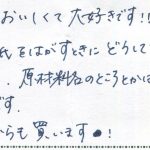 おいしくて大好きです!!
氏をはがすときにどうして
、原材料名のところとかは
です。
からも買います!